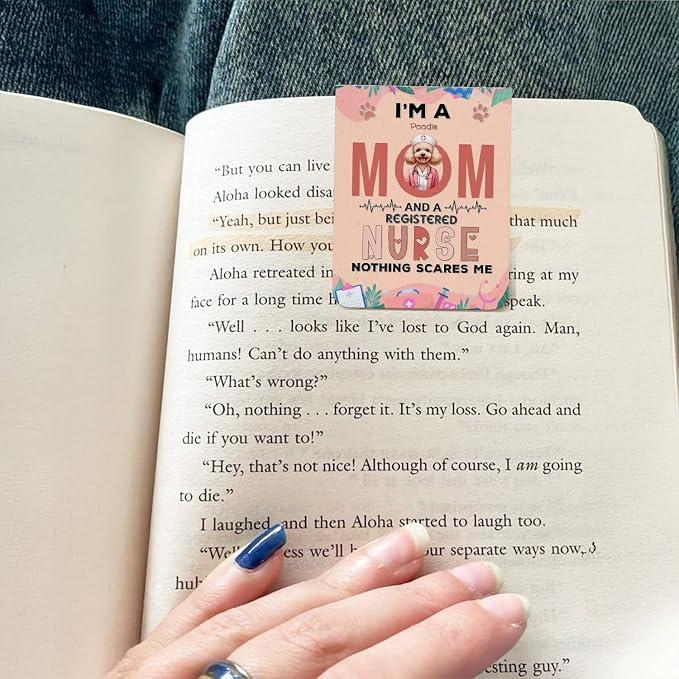 I'M A
Poodle
MOM
AND A
REGISTERED
NURSE
NOTHING SCARES ME
"But you can live
Aloha looked
"Yeah, but just that much
on its own. How you
Aloha retreated in ring at my
face for a long time speak.
"Well . . . looks like I've lost to God again. Man,
humans! Can't do anything with them."
"What's wrong?"
"Oh, nothing . . . forget it. It's my loss. Go ahead and
die if you want to!"
"Hey, that's not nice! Although of course, I am going
to die."
I laughed, and then Aloha started to laugh too.
"Well we'll our separate ways now,
esting guy."